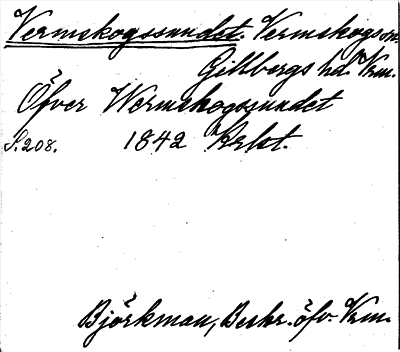 Vermskogssundet. Vermskogs sn.
Gillbergs hd. Vrm.
Öfver Wermskogssundet
S. 208. 1842 Krlst.
Björkman, Beskr. öfv. Vrm.